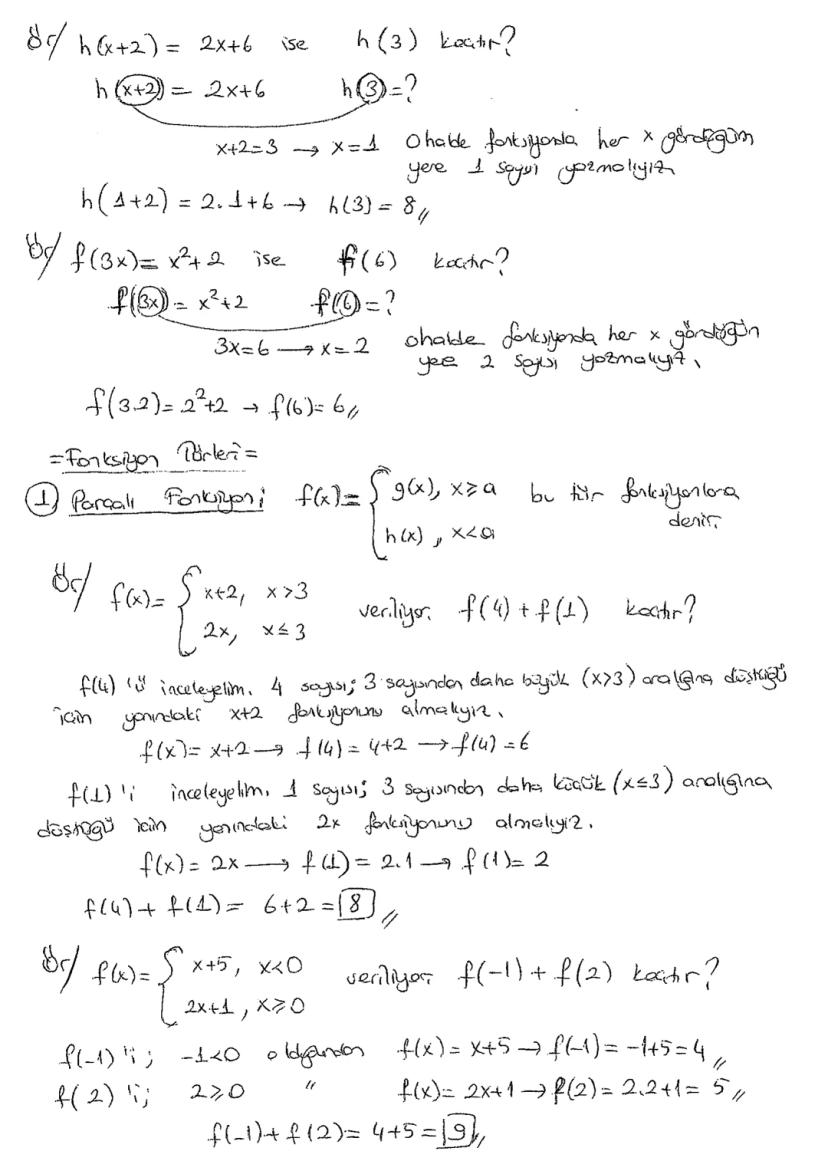 Ör/ h(x+2) = 2x+6 ise h(3) kaçtır?
h(x+2) = 2x+6 h(3)=?
x+2=3 → x=1 Ohalde fonksiyonda her x gördüğüm
yere 1 sayısı yazmalıyız
h(1+2) = 2.1+6 → h(3) = 8//
Ör/ f(3x)= x²+2 ise f(6) kaçtır?
f(3x) = x²+2 f(6)=?
3x=6 → x=2 ohalde fonksiyonda her x gördüğün
yere 2 sayısı yazmalıyız.
f(3.2)= 2²+2 → f(6)= 6//
=Fonksiyon Türleri=
1) Parçalı Fonksiyon; f(x)= { g(x), x≥a bu tür fonksiyonlara
denir.
h(x), x<a
Ör/ f(x)= { x+2, x>3
veriliyor. f(4) + f(1) kaçtır?
2x, x≤3
f(4) 'ü inceleyelim. 4 sayısı; 3 sayısından daha büyük (x>3) aralığına düştüğü
için yanındaki x+2 fonksiyonunu almalıyız.
f(x)= x+2 → f(4) = 4+2 → f(4) = 6
f(1) 'i inceleyelim. 1 sayısı; 3 sayısından daha küçük (x≤3) aralığına
düştüğü için yanındaki 2x fonksiyonunu almalıyız.
f(x) = 2x → f(1) = 2.1 → f(1)= 2
f(4)+ f(1) = 6+2 = 8 //
Ör/ f(x)= { x+5, x<0 veriliyor. f(-1) + f(2) kaçtır?
2x+1, x≥0
f(-1) 'i; -1<0 olduğundan f(x) = x+5 → f(-1) = -1+5 = 4 //
f(2) 'i; 2≥0 " f(x)= 2x+1 → f(2) = 2.2+1 = 5 //
f(-1)+ f(2)= 4+5 = 9 //